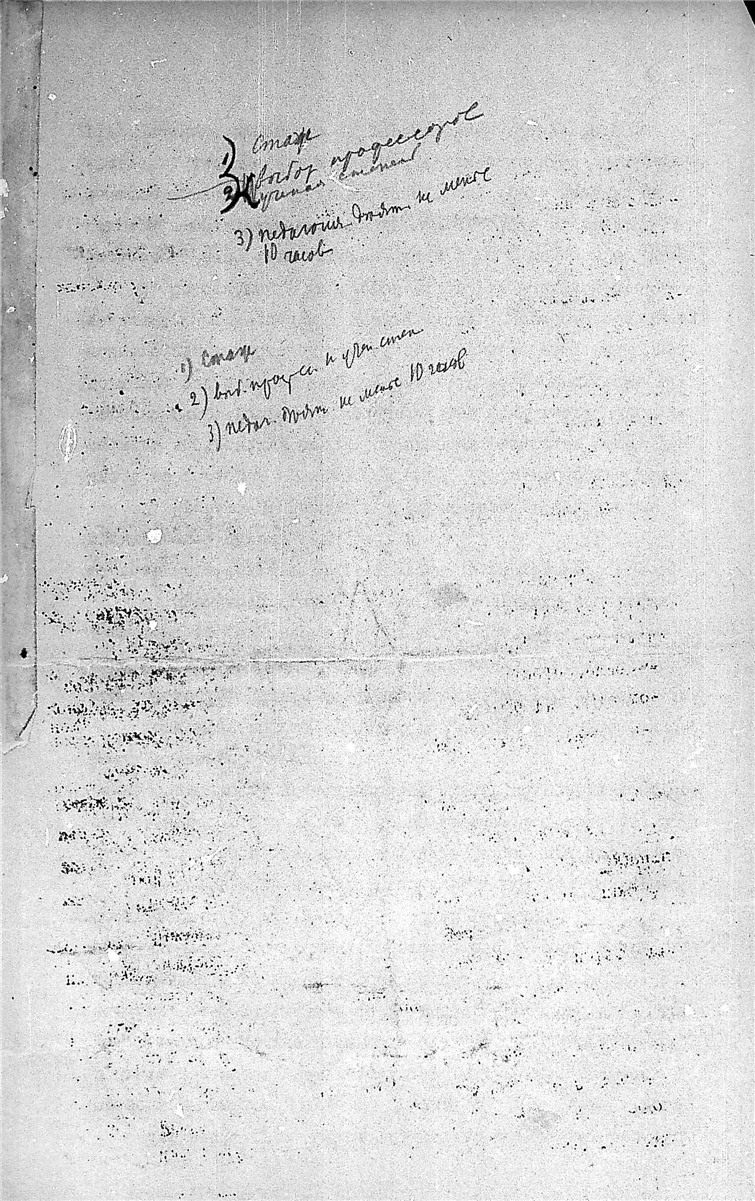 1) стаж
2) выбор профессоров
ученая степень
3) педагогич. деят. не менее
10 часов
1) Стаж
2) выб. професс. и учен. степ.
3) педаг. деят. не менее 10 часов